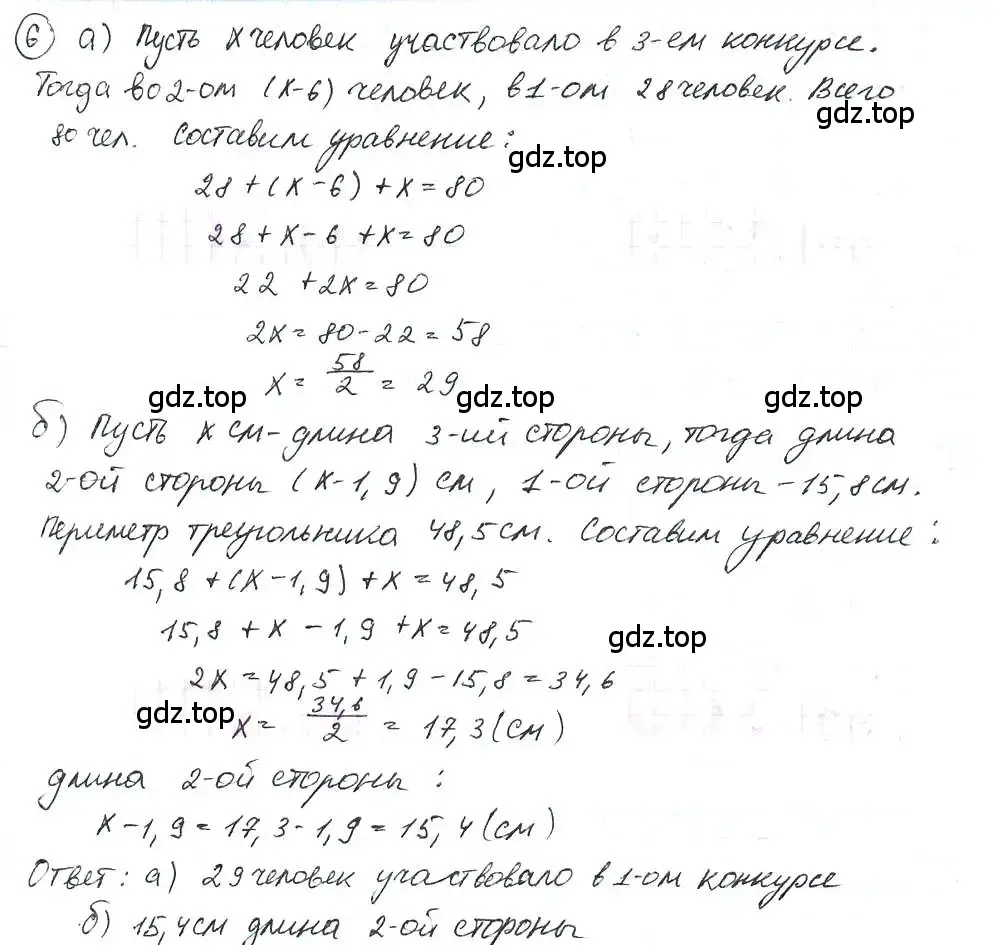 6 а) Пусть х человек участвовало в 3-ем конкурсе.
Тогда во 2-ом (х-6) человек, в 1-ом 28 человек. Всего
gdz.top
80 чел. Составим уравнение:
gdz.top
28+(х-6)+х=80
28+х-6+х=80
22+2х=80
2х=80-22=58
х= 58/2 = 29
gdz.top gdz.top gdz.top
б) Пусть х см-длина 3-ий стороны, тогда длина
2-ой стороны (х-1,9) см, 1-ой стороны-15,8см.
Периметр треугольника 48,5см. Составим уравнение:
15,8+(х-1,9)+х=48,5
15,8+х-1,9+х=48,5
gdz.top
2х=48,5+1,9-15,8=34,6
gdz.top
х= 34,6/2 = 17,3(см)
длина 2-ой стороны:
х-1,9=17,3-1,9=15,4(см)
Ответ: а) 29 человек участвовало в 1-ом конкурсе
б) 15,4см длина 2-ой стороны